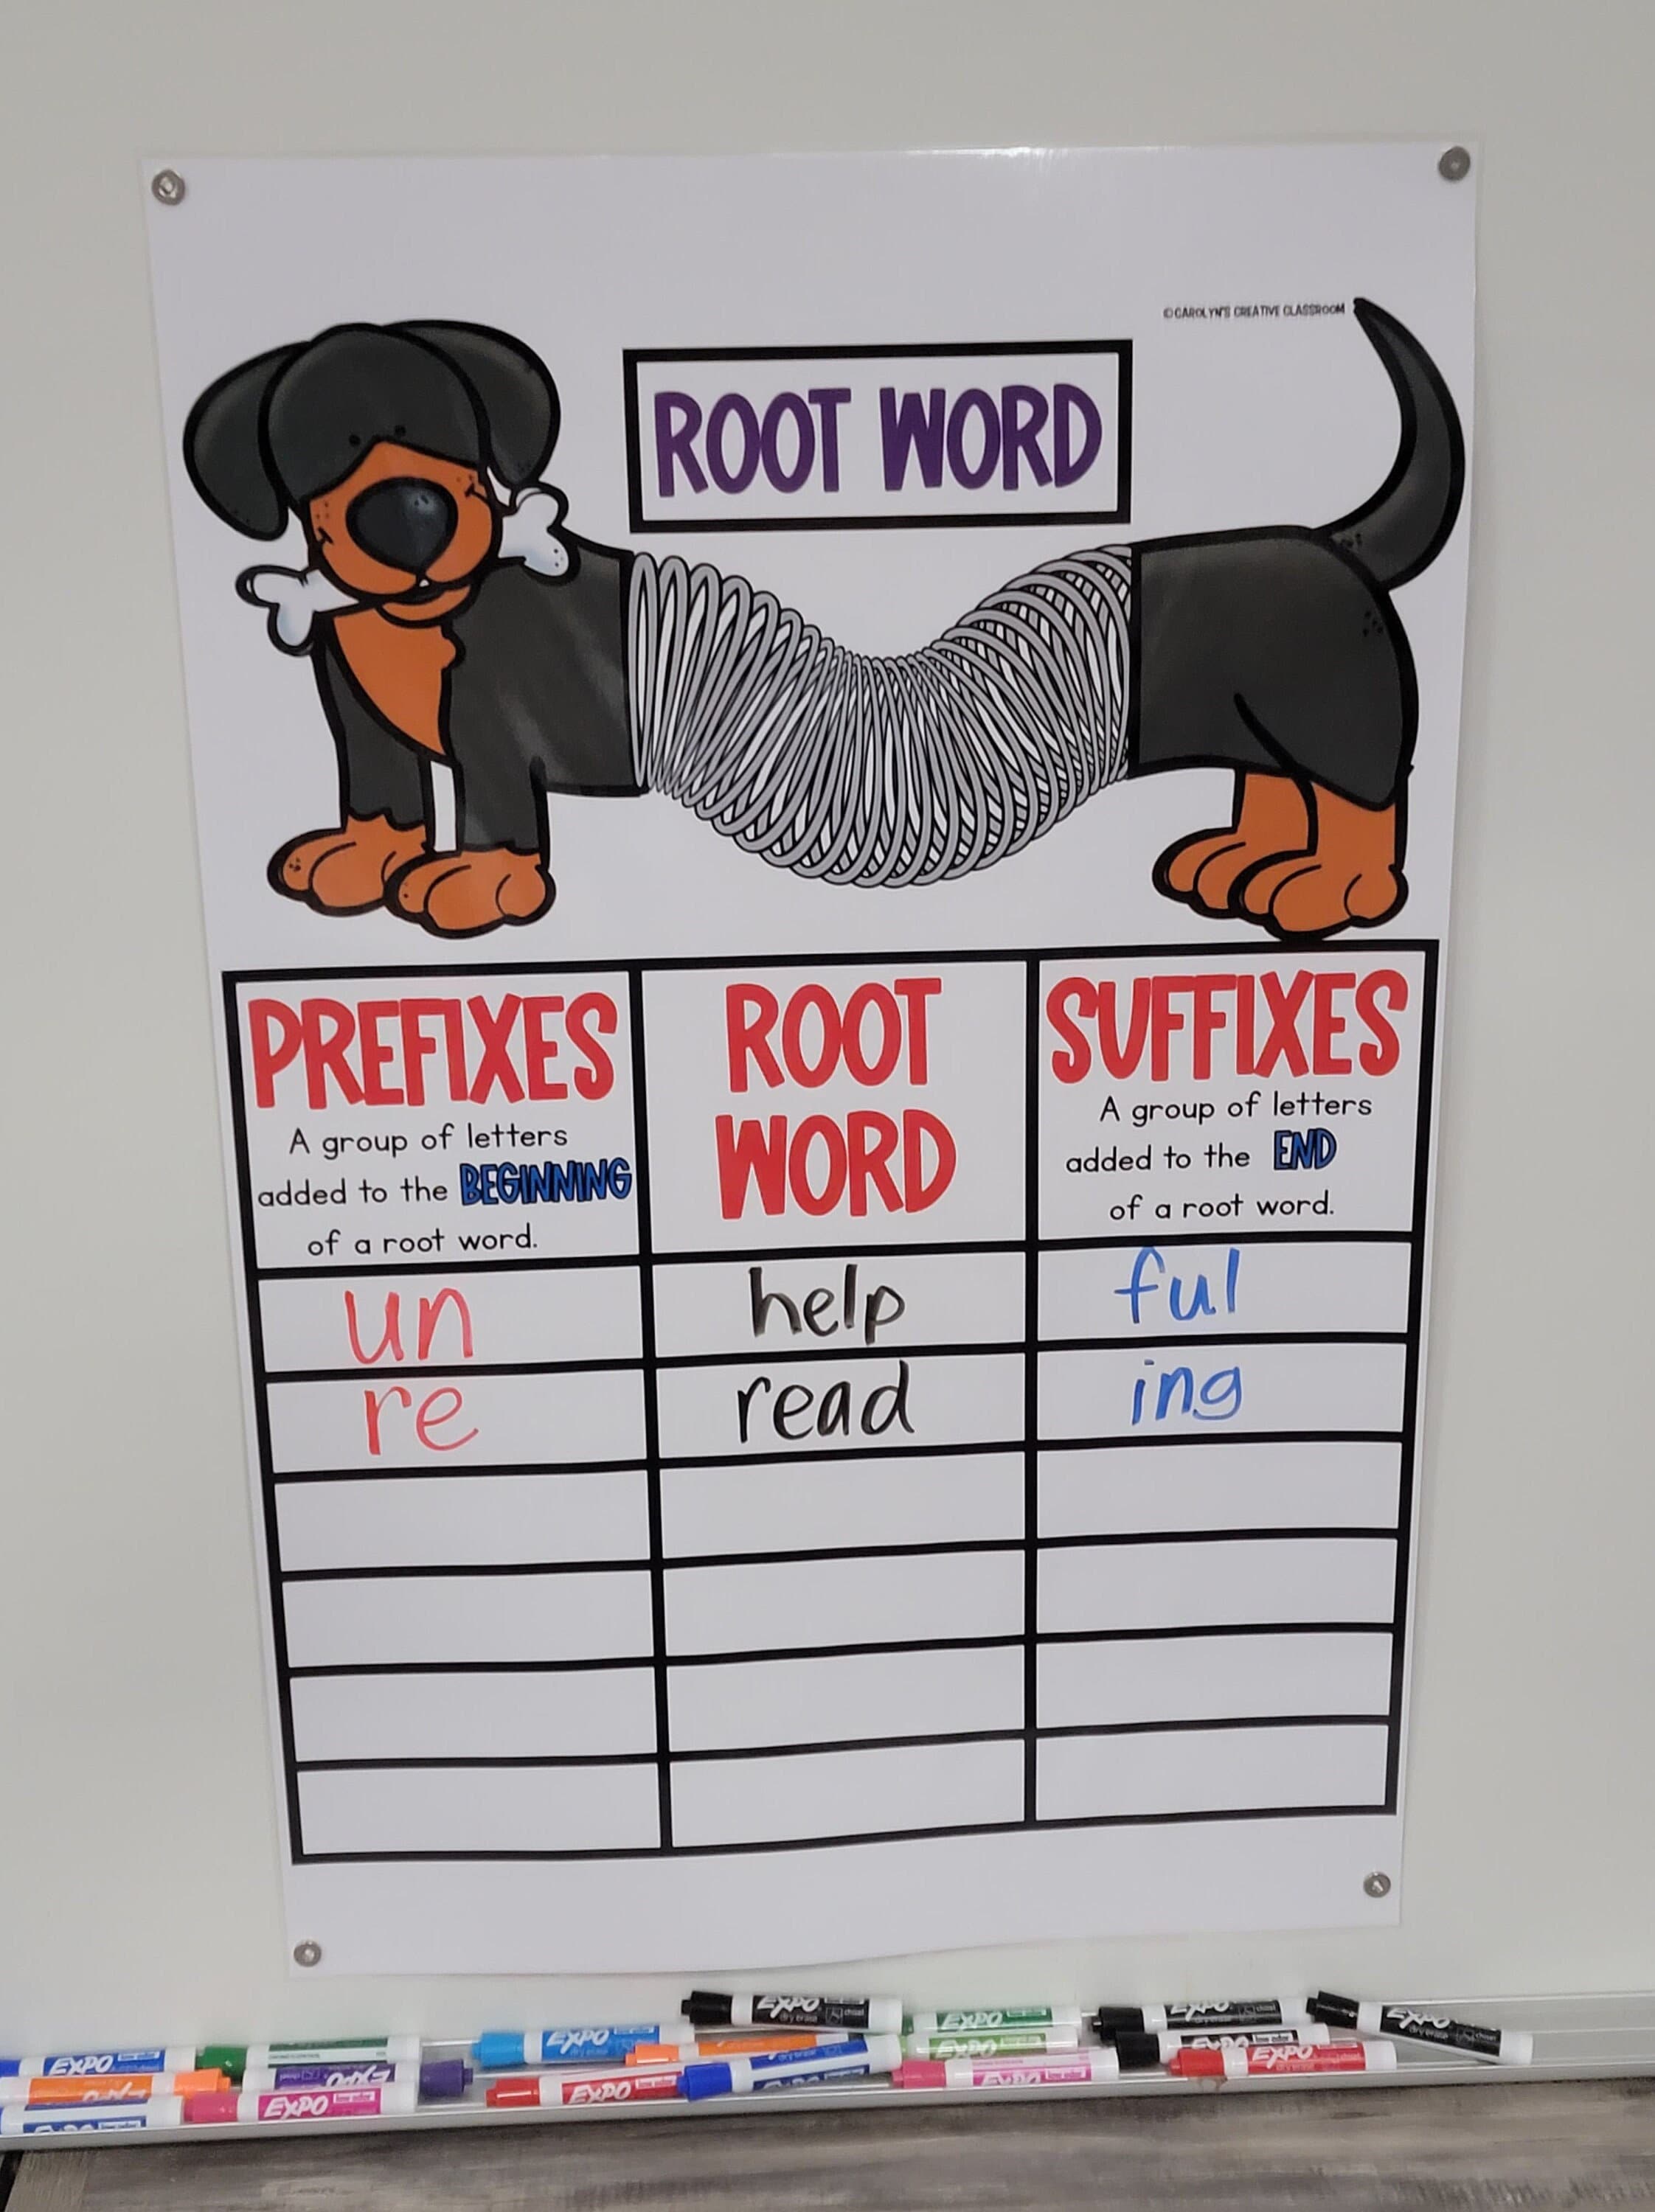 ©CAROLYN'S CREATIVE CLASSROOM
ROOT WORD
PREFIXES
A group of letters
added to the BEGINNING
of a root word.
ROOT
WORD
SUFFIXES
A group of letters
added to the END
of a root word.
un help ful
re read ing
EXPO
dry erase
EXPO
EXPO
EXPO
dry erase
EXPO
EXPO
EXPO
EXPO
EXPO
EXPO